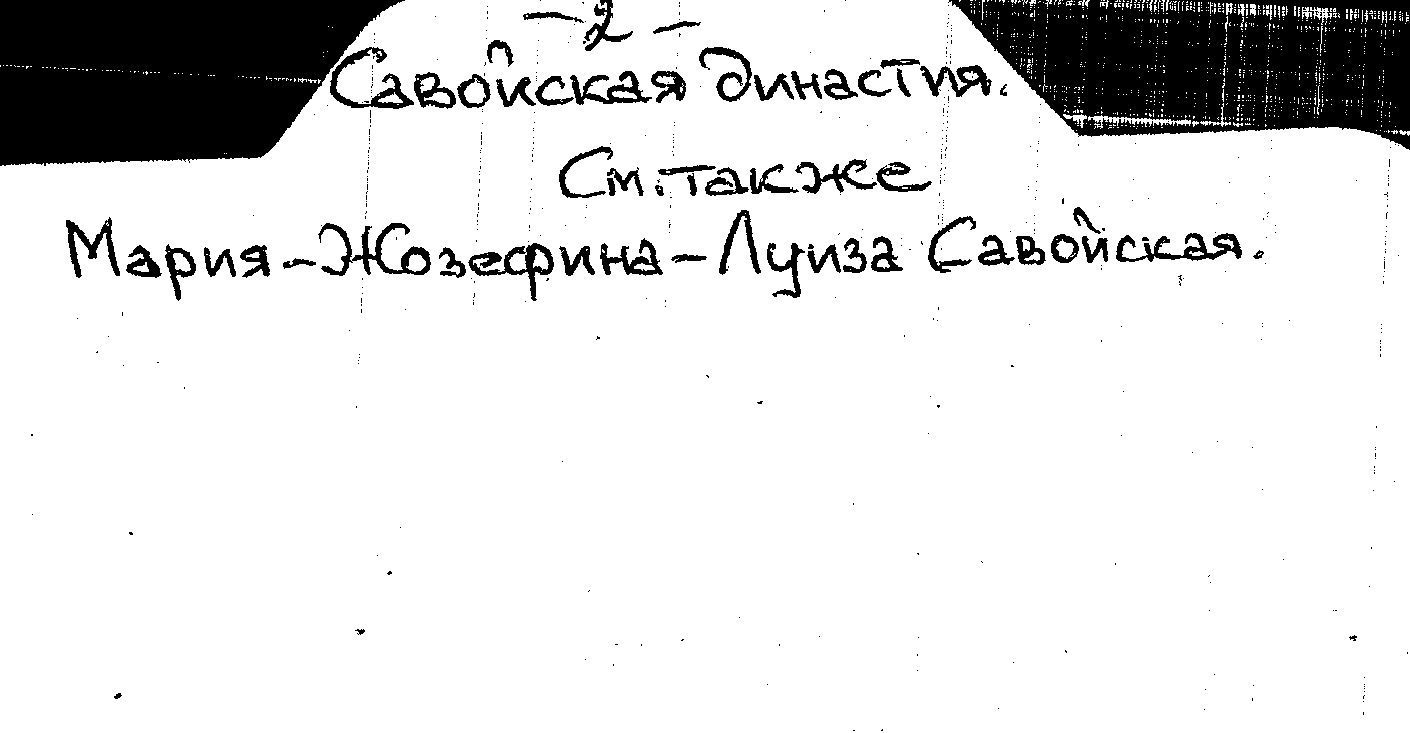 -2-
Савойская династия.
См. также
Мария-Жозефина-Луиза Савойская.